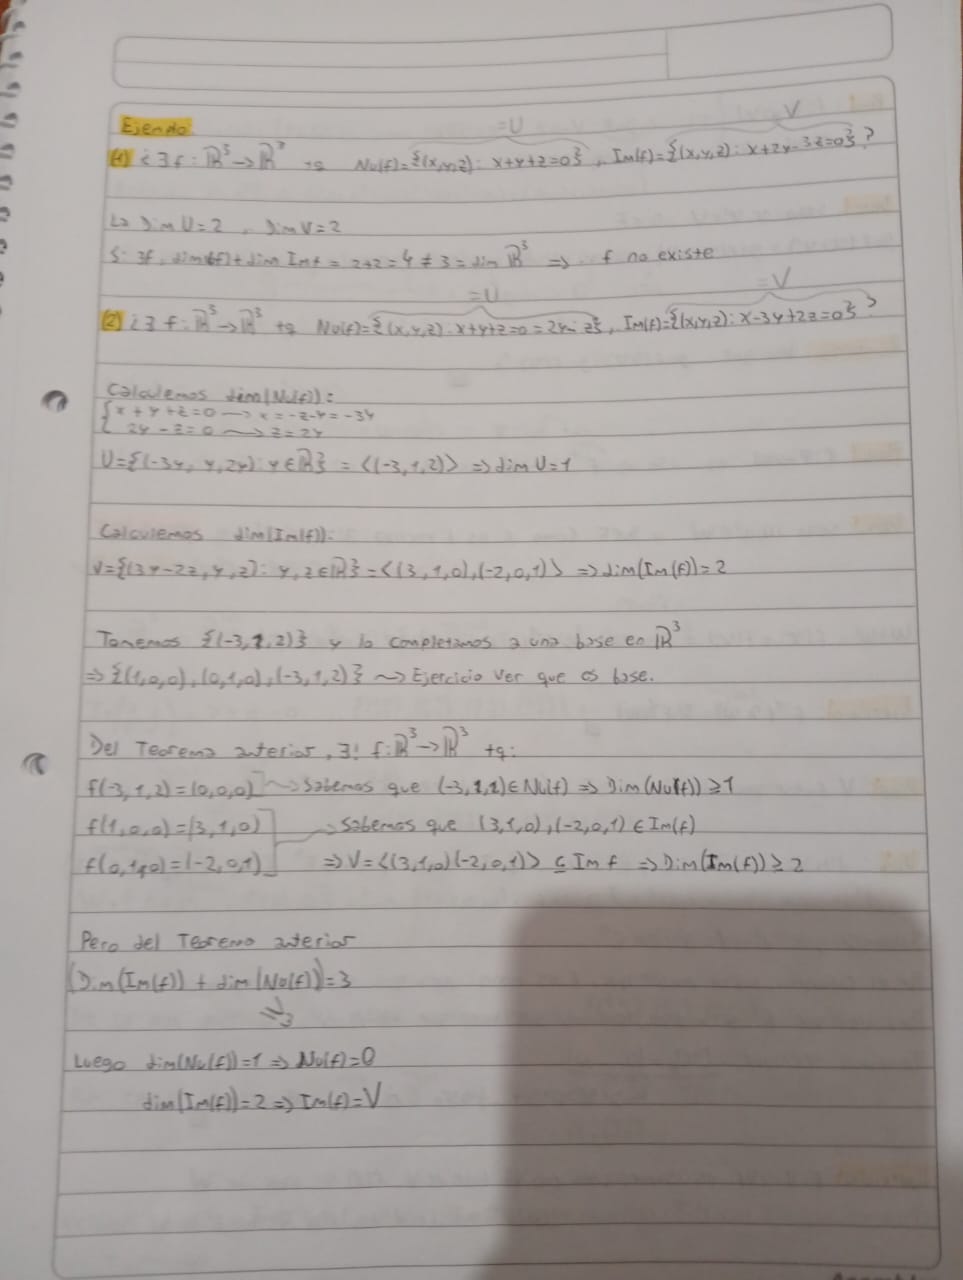 Ejemplo
(1) ¿∃ f: ℝ³→ℝ³ tq Nu(f)={(x,y,z): x+y+z=0}, Im(f)={(x,y,z): x+2y-3z=0}?
=U
V
La Dim U=2, Dim V=2
Si ∃f, dim(f)+dim Imf = 2+2=4≠3=dim ℝ³ => f no existe
(2) ¿∃ f: ℝ³→ℝ³ tq Nu(f)={(x,y,z): x+y+z=0=2y-z}, Im(f)={(x,y,z): x-3y+2z=0}?
=U
=V
Calculemos dim(Nu(f)):
{ x+y+z=0 → x=-z-y=-3y
2y-z=0 → z=2y
U={(-3y, y, 2y): y∈ℝ} = <(-3,1,2)> => dim U=1
Calculemos dim(Im(f)):
V={(3y-2z, y, z): y, z∈ℝ}=<(3,1,0),(-2,0,1)> => dim(Im(f))=2
Tomemos {(-3,1,2)} y lo completamos a una base en ℝ³
=> {(1,0,0),(0,1,0),(-3,1,2)} → Ejercicio ver que es base.
Del Teorema anterior, ∃! f:ℝ³→ℝ³ tq:
f(-3,1,2)=(0,0,0) → Sabemos que (-3,1,2)∈Nu(f) => Dim(Nu(f))≥1
f(1,0,0)=(3,1,0) → Sabemos que (3,1,0),(-2,0,1)∈Im(f)
f(0,1,0)=(-2,0,1) => V=<(3,1,0)(-2,0,1)>⊆Im f => Dim(Im(f))≥2
Pero del Teorema anterior
Dim(Im(f)) + dim(Nu(f))=3
≥3
Luego dim(Nu(f))=1 => Nu(f)=U
dim(Im(f))=2 => Im(f)=V